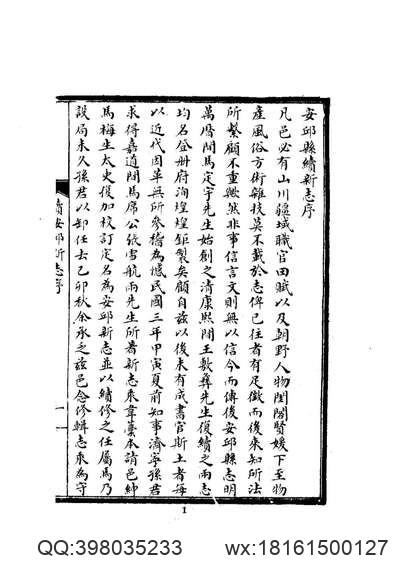 安邱縣續新志序
凡邑必有山川疆域職官田賦以及朝野人物閨閣賢媛下至物
產風俗方術雜技莫不載於志俾已往者有足徵而後來知所法
所繫顧不重歟然非事信言文則無以信今而傳後安邱縣志明
萬曆間馬定宇先生始創之清康熙間王歎彝先生復續之兩志
均名登冊府洵煌煌鉅製矣顧自茲以後未有成書官斯土者每
以近代因革無所參稽為憾民國三年甲寅夏前知事濟寧孫君
求得嘉道間馬席公紙雪航兩先生所著新志乘韋藁本請邑紳
馬梅生太史復加校訂定名為安邱新志並以續修之任屬馬乃
設局未久孫君以卸任去乙卯秋余承乏茲邑念修輯志乘為守
續安邱新志序
一
1
QQ:398035233 wx:18161500127